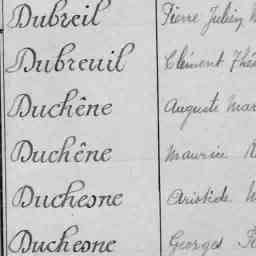 Dubreil Pierre Julien
Dubreuil Clément
Duchêne Auguste
Duchêne Maurice
Duchesne Aristide
Duchesne Georges